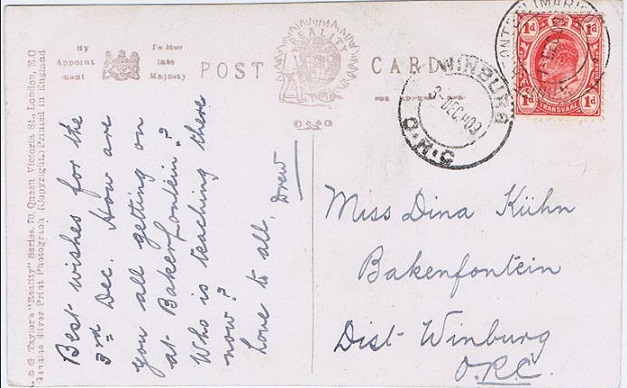 By
Appoint
ment
To Her
late
Majesty
POST
CARD
REALITY
A. & G. Taylor's "Reality" Series, 70, Queen Victoria St., London, E.C.
Genuine Silver Print Photograph (Copyright.) Printed in England
WINBURG
3-DEC 1909
O.R.C
1d
1d
1d
1d
TRANSVAAL
Best wishes for the
3rd Dec. How are
you all getting on
at Bakenfontein?
Who is teaching there
now?
Love to all, Drew
Miss Dina Kühn
Bakenfontein
Dist. Winburg
O.R.C.